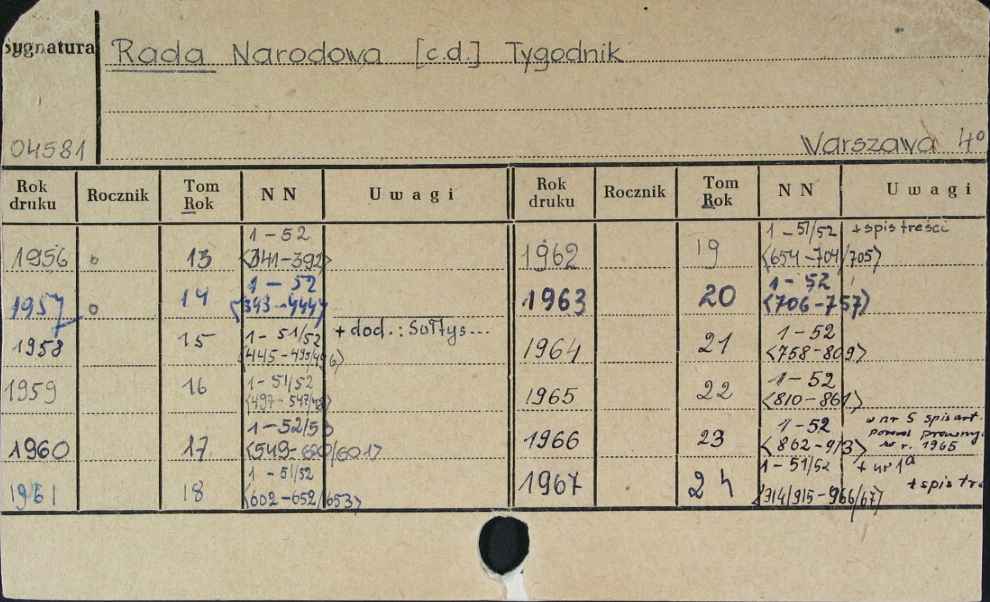 Sygnatura Rada Narodowa [c.d.] Tygodnik
04581 Warszawa 4°
Rok druku Rocznik Tom Rok NN Uwagi Rok druku Rocznik Tom Rok NN Uwagi
1956 o 13 1-52 <341-392>
1957 o 14 1-52 <343-444>
1958 15 1-51/52 <445-495/496> + dod.: Sołtys...
1959 16 1-51/52 <497-547/48>
1960 17 1-52/53 <549-600/601>
1961 18 1-51/52 <602-652/653>
1962 19 1-51/52 <654-704/705> + spis treści
1963 20 1-52 <706-757>
1964 21 1-52 <758-809>
1965 22 1-52 <810-861>
1966 23 1-52 <862-913> w nr 5 spis art. w r. 1965
1967 24 1-51/52 <914/915-966/67> + nr 1a + spis tre